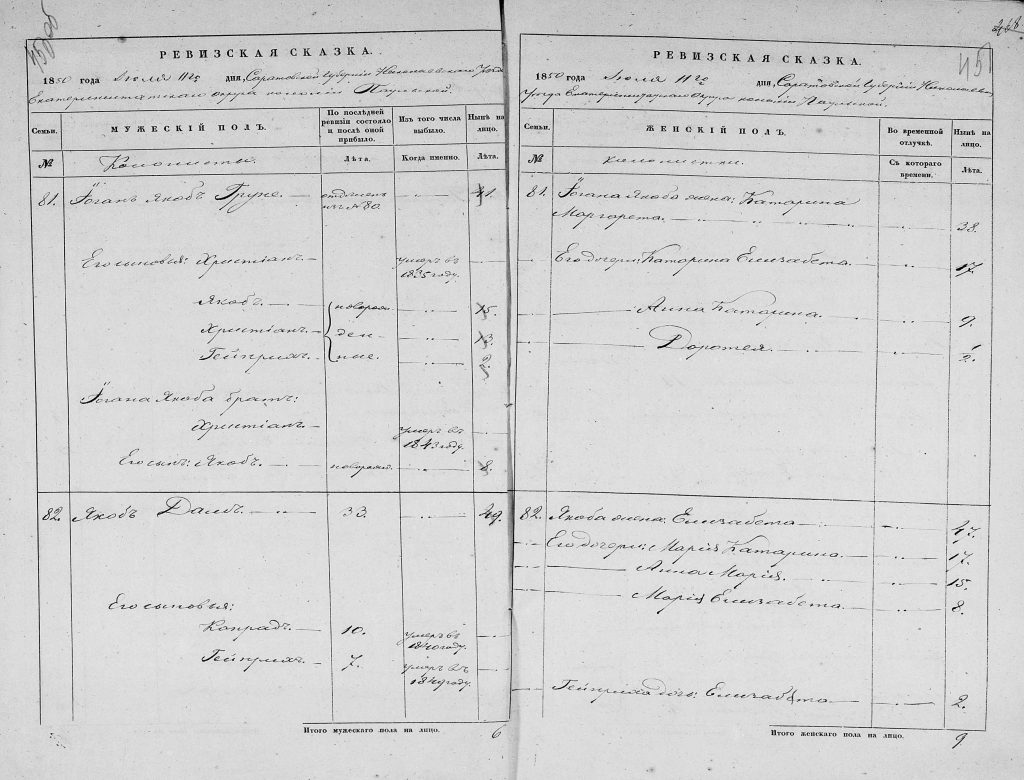 РЕВИЗСКАЯ СКАЗКА.
1850 года Іюля 11го дня, Саратовской Губерніи Николаевского Уѣзда
Екатериненштатского округа колоніи Паульской.
Семьи.
МУЖЕСКІЙ ПОЛЪ.
По послѣдней ревизіи состояло и послѣ оной прибыло.
Изъ того числа выбыло.
Нынѣ на лицо.
№
Колонисты.
Лѣта.
Когда именно.
Лѣта.
81. Іоганъ Якобъ Груне. отдѣленъ изъ № 80. 41.
Его сыновья: Христіанъ умеръ въ 1835 году.
Якобъ. новорож- 15.
Христіан. ден- 13.
Гейнрихъ. ные. 2.
Іогана Якоба братъ:
Христіанъ умеръ въ 1843 году.
Его сынъ: Якобъ. новорожд. 8.
82. Якобъ Дамъ. 33. 49.
Его сыновья:
Конрадъ. 10. умеръ въ 1840 году.
Гейнрихъ. 7. умеръ въ 1849 году.
Итого мужескаго пола на лицо. 6
268
45
РЕВИЗСКАЯ СКАЗКА.
1850 года Іюля 11го дня, Саратовской Губерніи Николаевск.
Уѣзда Екатериненштатского Округа колоніи Паульской.
Семьи.
ЖЕНСКІЙ ПОЛЪ.
Во временной отлучкѣ.
Нынѣ на лицо.
№
колонистки.
Съ котораго времени.
Лѣта.
81. Іогана Якоба жена: Катарина
Маргарета. 38.
Его дочери: Катарина Елизабета. 17.
Анна Катарина. 9.
Доротея. 2.
82. Якоба жена: Елизабета 47.
Его дочери: Марія Катарина. 17.
Анна Марія. 15.
Марія Елизабета. 8.
Гейнриха дочь: Елизабета 2.
Итого женскаго пола на лицо. 9